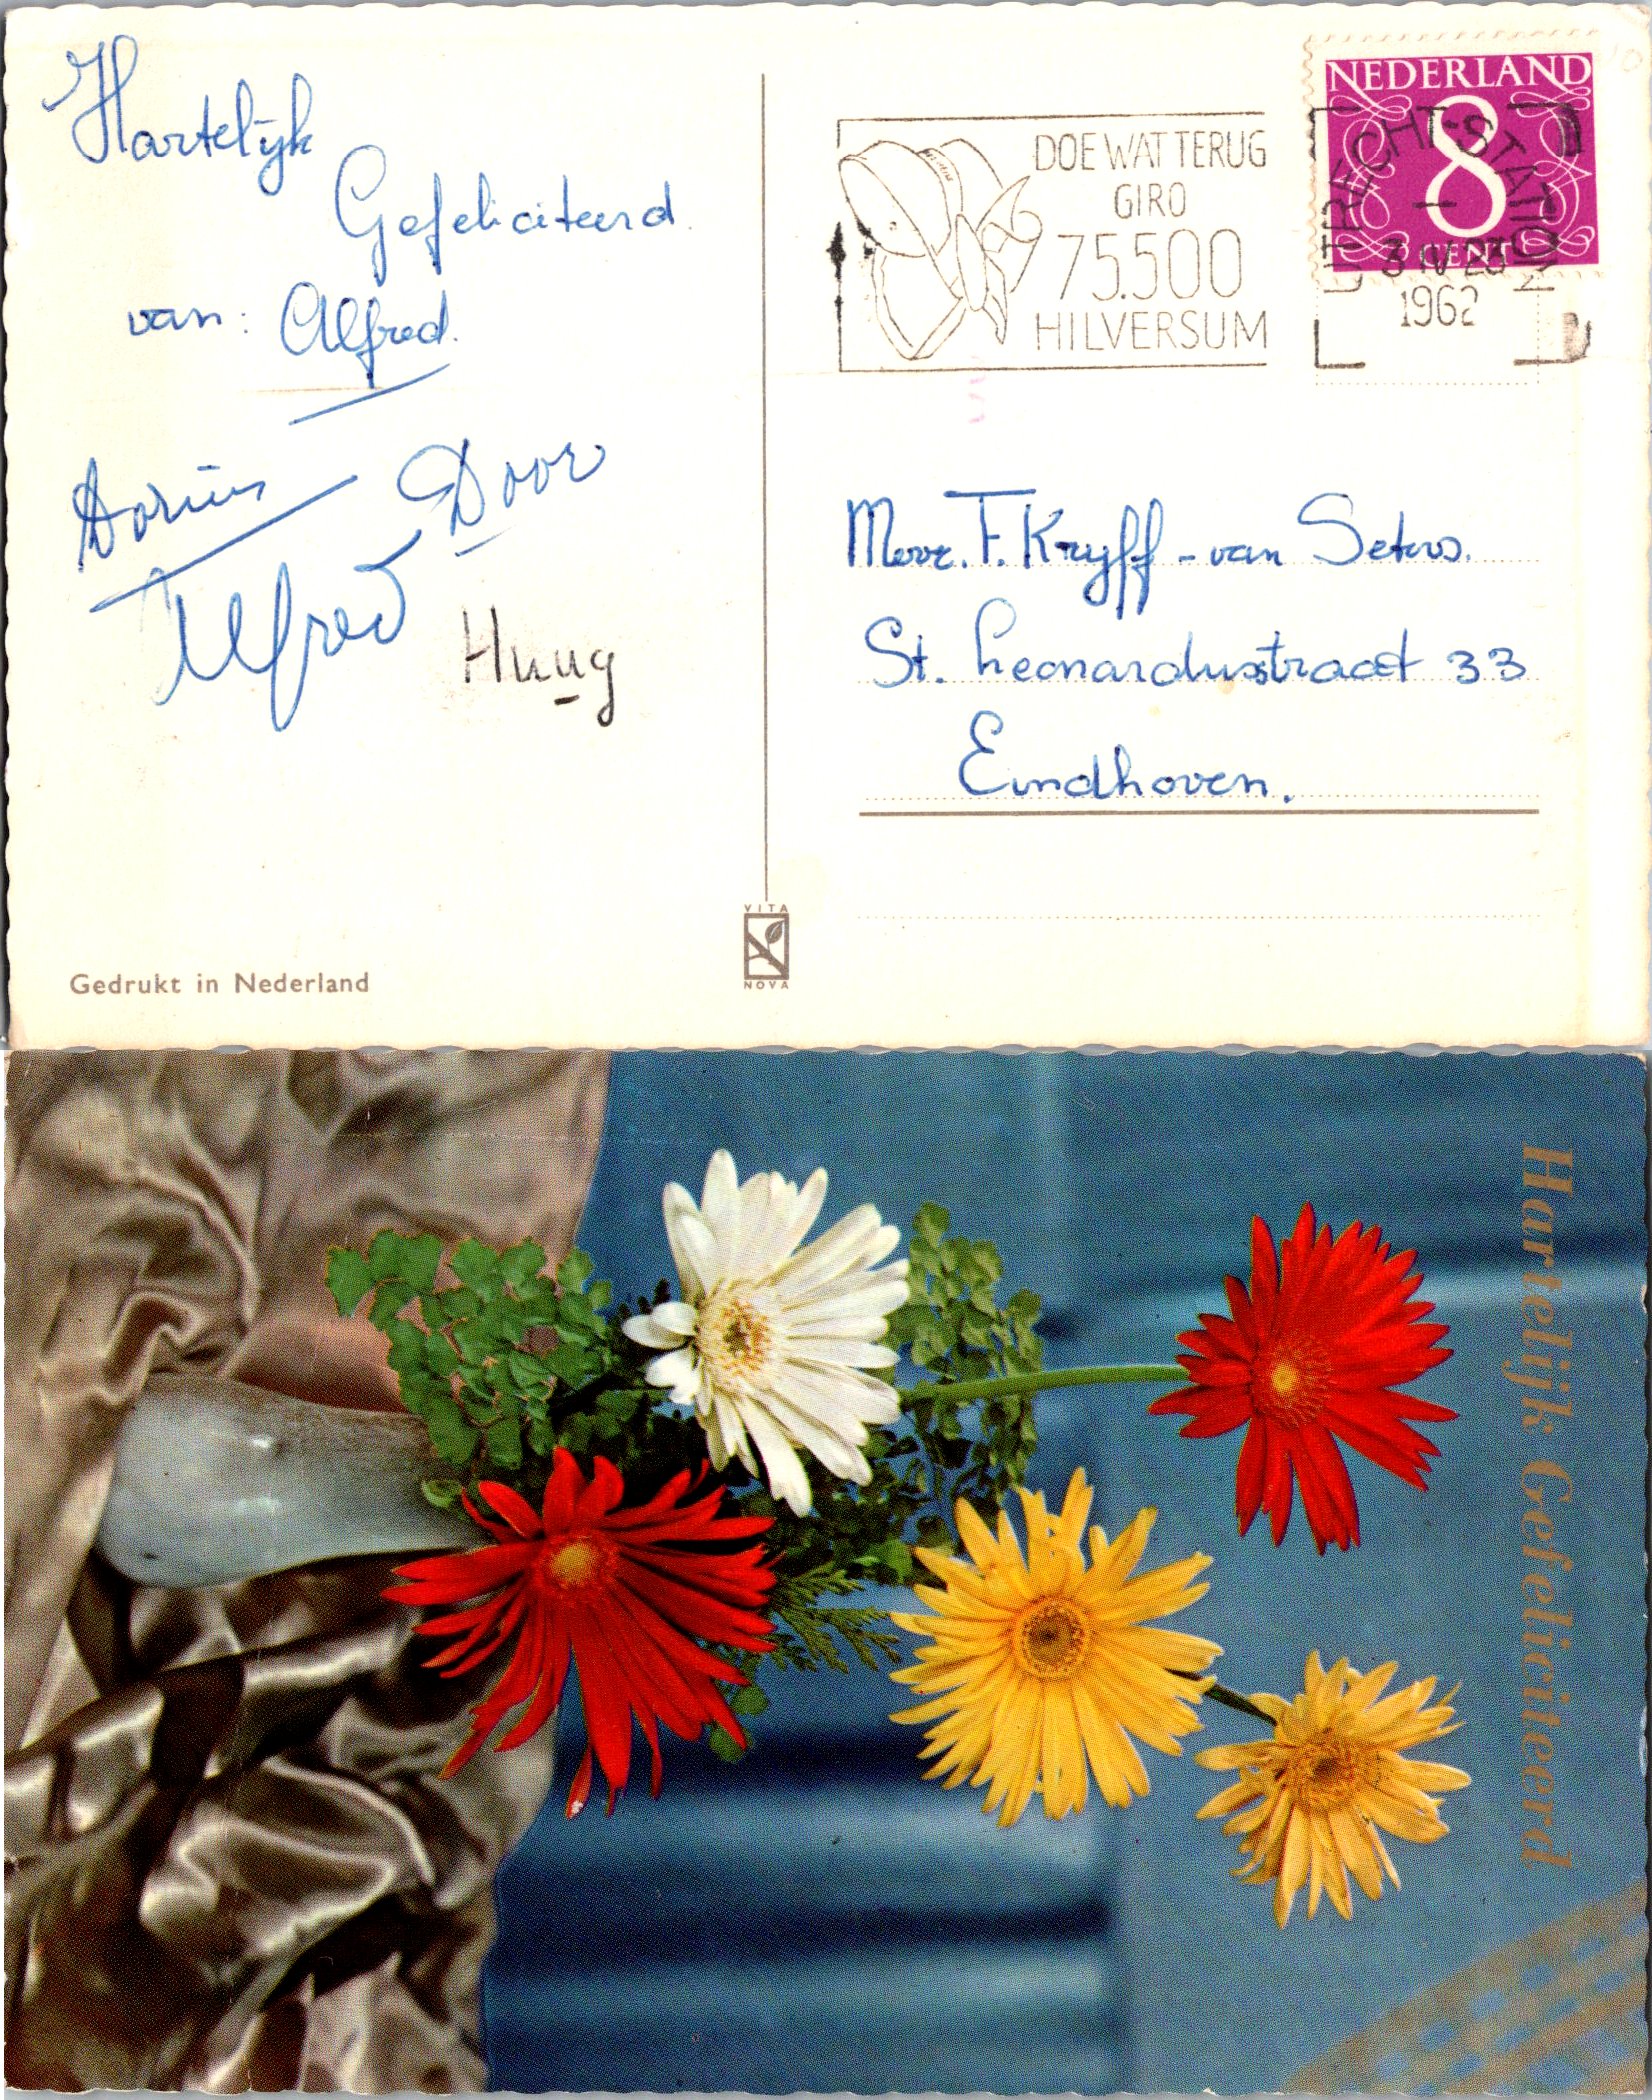 Hartelijk
Gefeliciteerd
van: Alfred.
Dorius Door
Alfred
Huug
Gedrukt in Nederland
VITA
NOVA
DOE WAT TERUG
GIRO
75.500
HILVERSUM
NEDERLAND
8
CENT
UTRECHT-STATION
3 IV 23
1962
Mevr. F. Kryff - van Seters.
St. Leonardusstraat 33
Eindhoven.
Hartelijk Gefeliciteerd